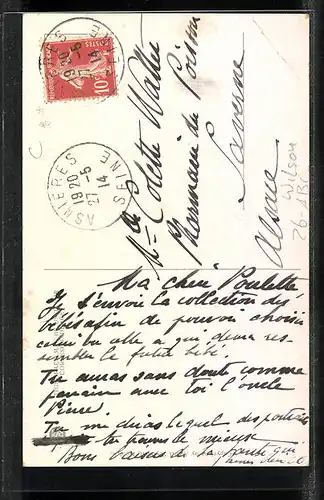 POSTES
10
ASNIÈRES
19 20
27 -5
14
SEINE
Mlle Colette Walter
Pharmacie du Poisson
Saverne
Alsace
Wilson
Ma chère Poulette
Je t'envoie la collection des
bébés afin de pouvoir choisir
celui ou elle a qui devra res-
sembler le futur bébé.
Tu auras sans doute comme
parrain avec toi l'oncle
Pierre.
Tu me diras lequel des portraits
tu trouves de mieux.
Bons baisers de la tante qui